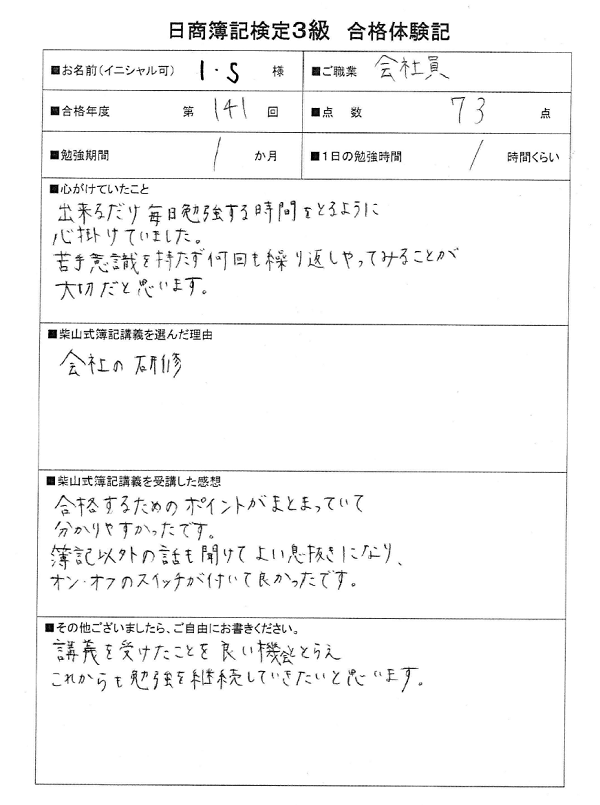 日商簿記検定3級 合格体験記
■お名前(イニシャル可) I・S 様 ■ご職業 会社員
■合格年度 第 141 回 ■点 数 73 点
■勉強期間 1 か月 ■1日の勉強時間 1 時間くらい
■心がけていたこと
出来るだけ毎日勉強する時間をとるように
心掛けていました。
苦手意識を持たず何回も繰り返しやってみることが
大切だと思います。
■柴山式簿記講義を選んだ理由
会社の研修
■柴山式簿記講義を受講した感想
合格するためのポイントがまとまっていて
分かりやすかったです。
簿記以外の話も聞けてよい息抜きになり、
オン・オフのスイッチが付いて良かったです。
■その他ございましたら、ご自由にお書きください。
講義を受けたことを良い機会ととらえ
これからも勉強を継続していきたいと思います。